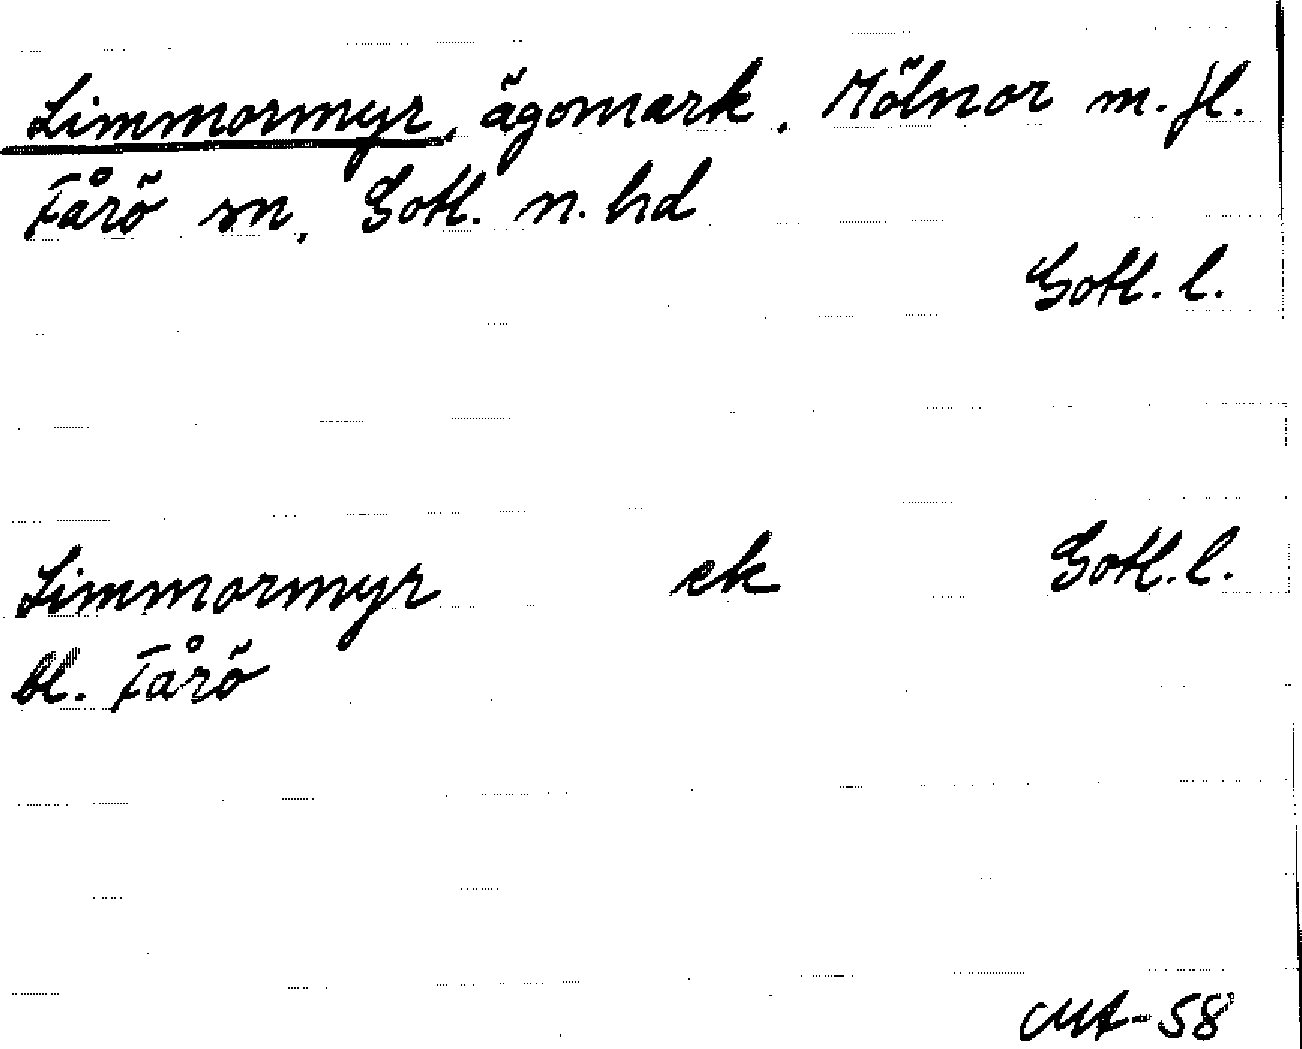 Limmormyr, ägomark, Mölnor m. fl.
Fårö sn, Gotl. n. hd
Gotl. l.
Limmormyr ek Gotl. l.
bl. Fårö